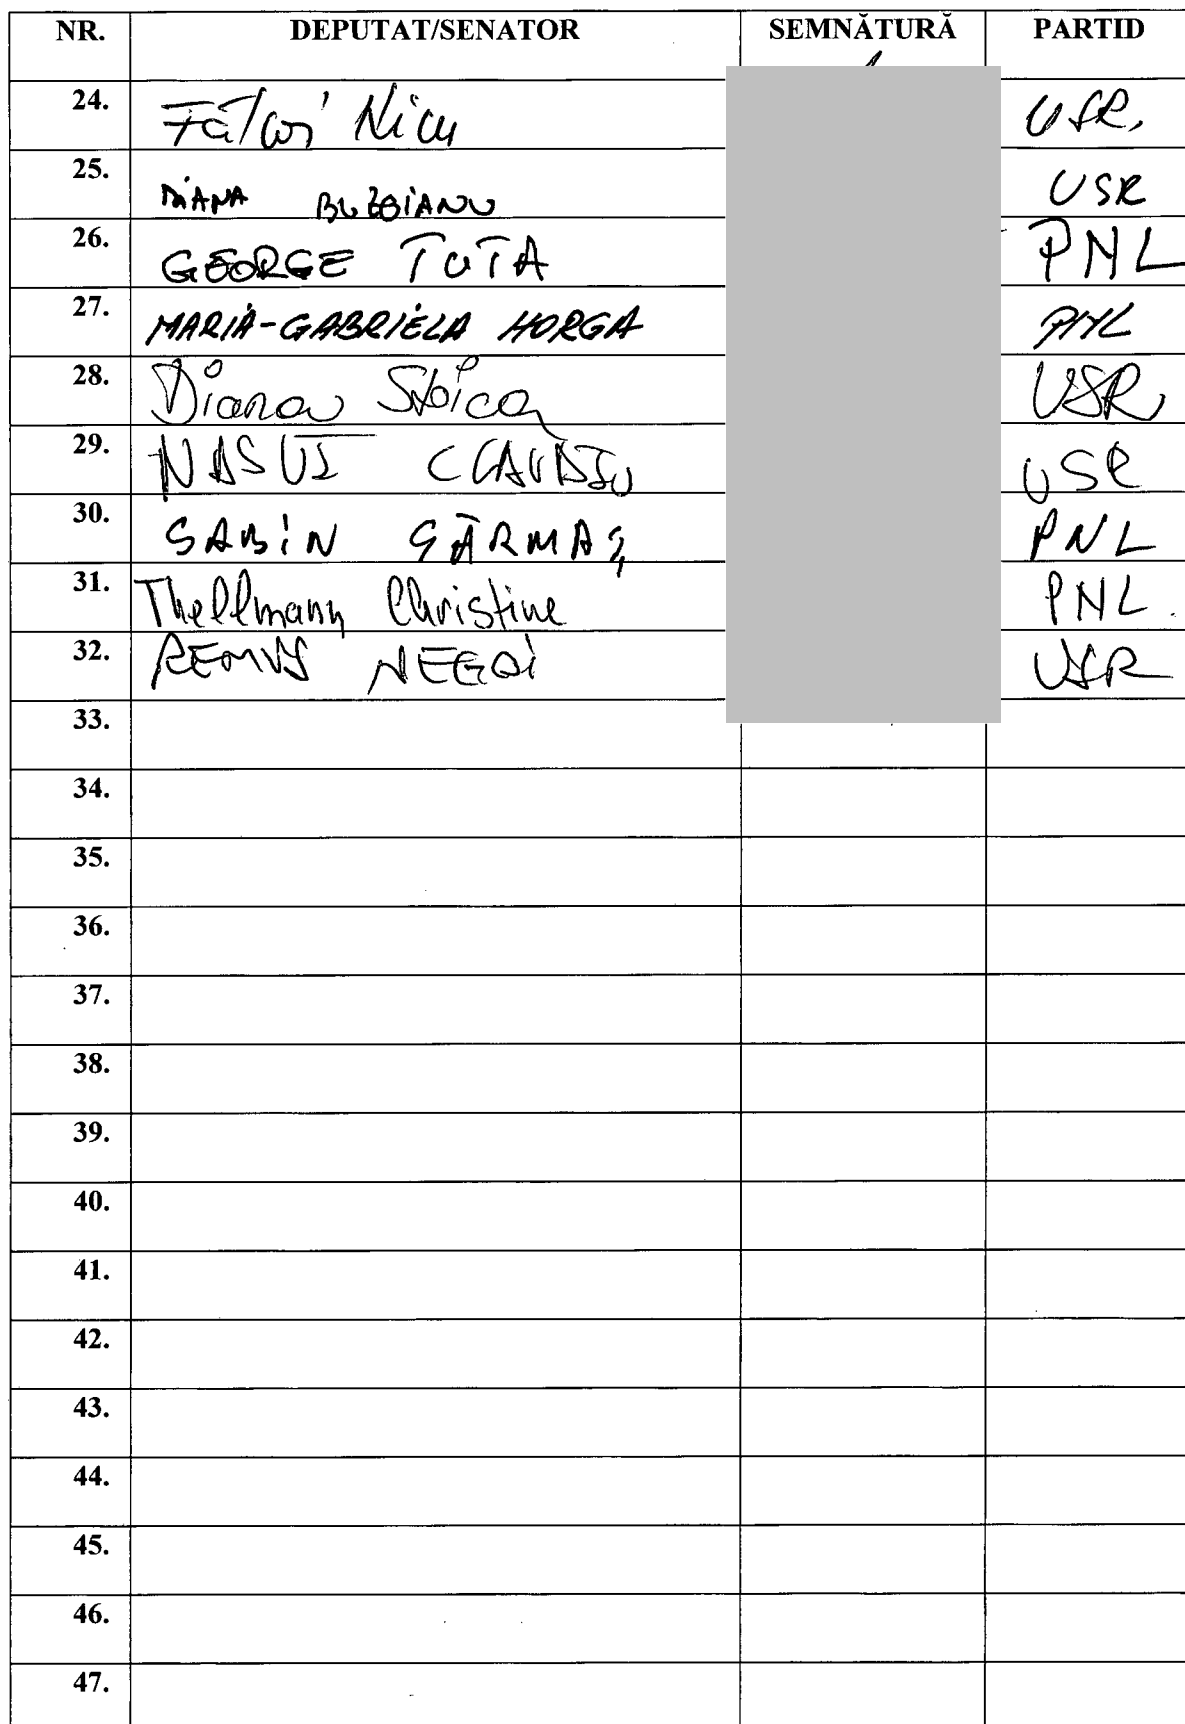 NR. DEPUTAT/SENATOR SEMNĂTURĂ PARTID
24. Fălcoi Nicu USR.
25. DIANA BUZOIANU USR
26. GEORGE TUTA PNL
27. MARIA-GABRIELA HORGA PNL
28. Diana Stoica USR
29. NASUI CLAUDIU USR
30. SABIN SĂRMAȘ PNL
31. Thellmann Christine PNL.
32. REMUS NEGOI USR
33.
34.
35.
36.
37.
38.
39.
40.
41.
42.
43.
44.
45.
46.
47.